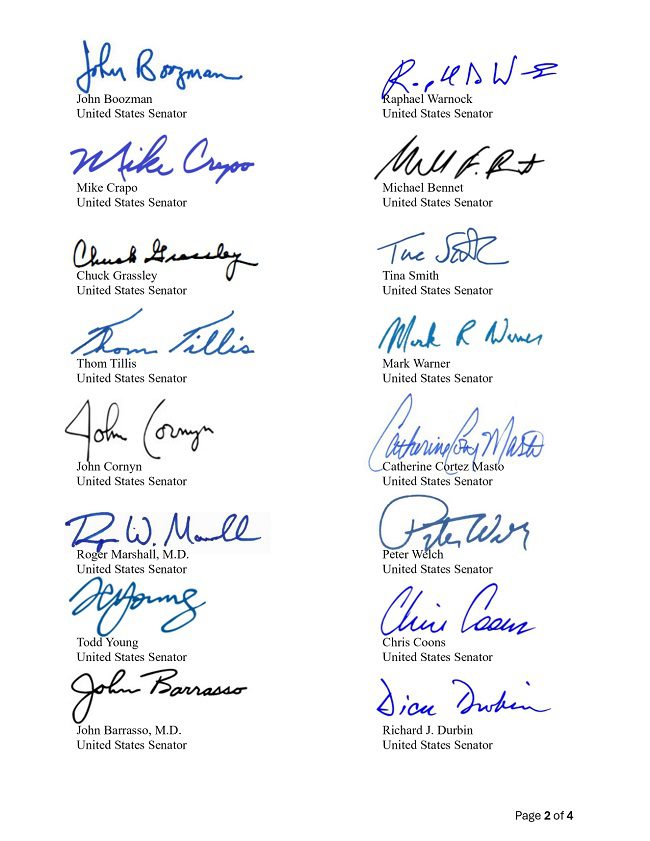 John Boozman
John Boozman
United States Senator
Raphael Warnock
United States Senator
Mike Crapo
Mike Crapo
United States Senator
Michael Bennet
United States Senator
Chuck Grassley
Chuck Grassley
United States Senator
Tina Smith
United States Senator
Thom Tillis
Thom Tillis
United States Senator
Mark R Warner
Mark Warner
United States Senator
John Cornyn
John Cornyn
United States Senator
Catherine Cortez Masto
Catherine Cortez Masto
United States Senator
Roger Marshall, M.D.
United States Senator
Peter Welch
Peter Welch
United States Senator
Todd Young
United States Senator
Chris Coons
Chris Coons
United States Senator
John Barrasso
John Barrasso, M.D.
United States Senator
Dick Durbin
Richard J. Durbin
United States Senator
Page 2 of 4